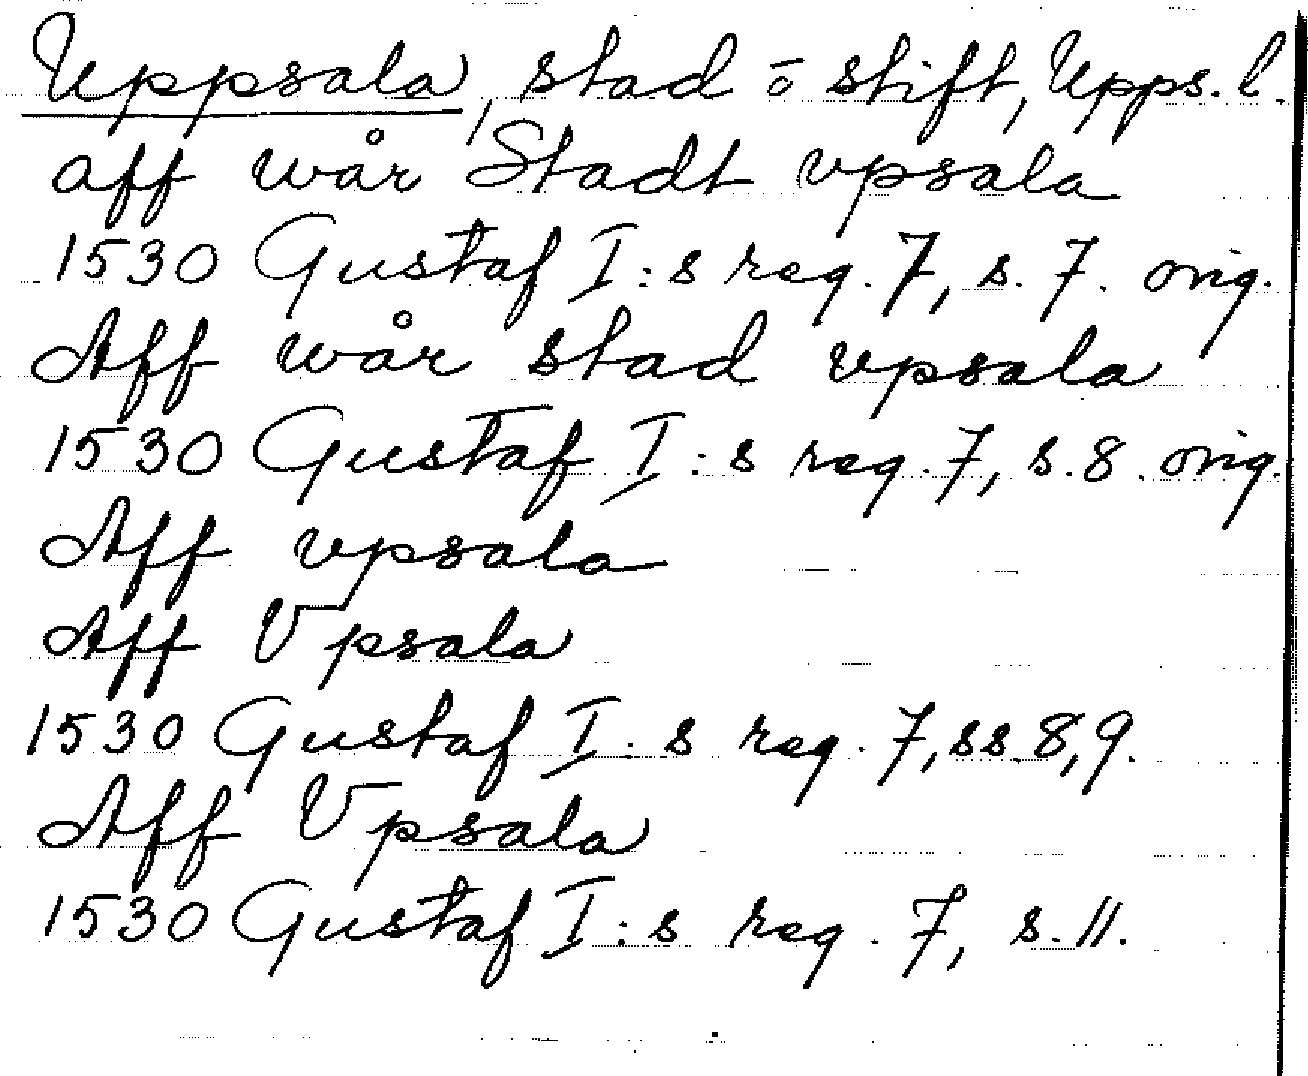 Uppsala, stad ō stift, Upps. l.
aff wår Stadt vpsala
1530 Gustaf I:s reg. 7, s. 7. orig.
Aff wår stad vpsala
1530 Gustaf I:s reg. 7, s. 8. orig.
Aff vpsala
Aff Vpsala
1530 Gustaf I:s reg. 7, ss 8, 9.
Aff Vpsala
1530 Gustaf I:s reg. 7, s. 11.